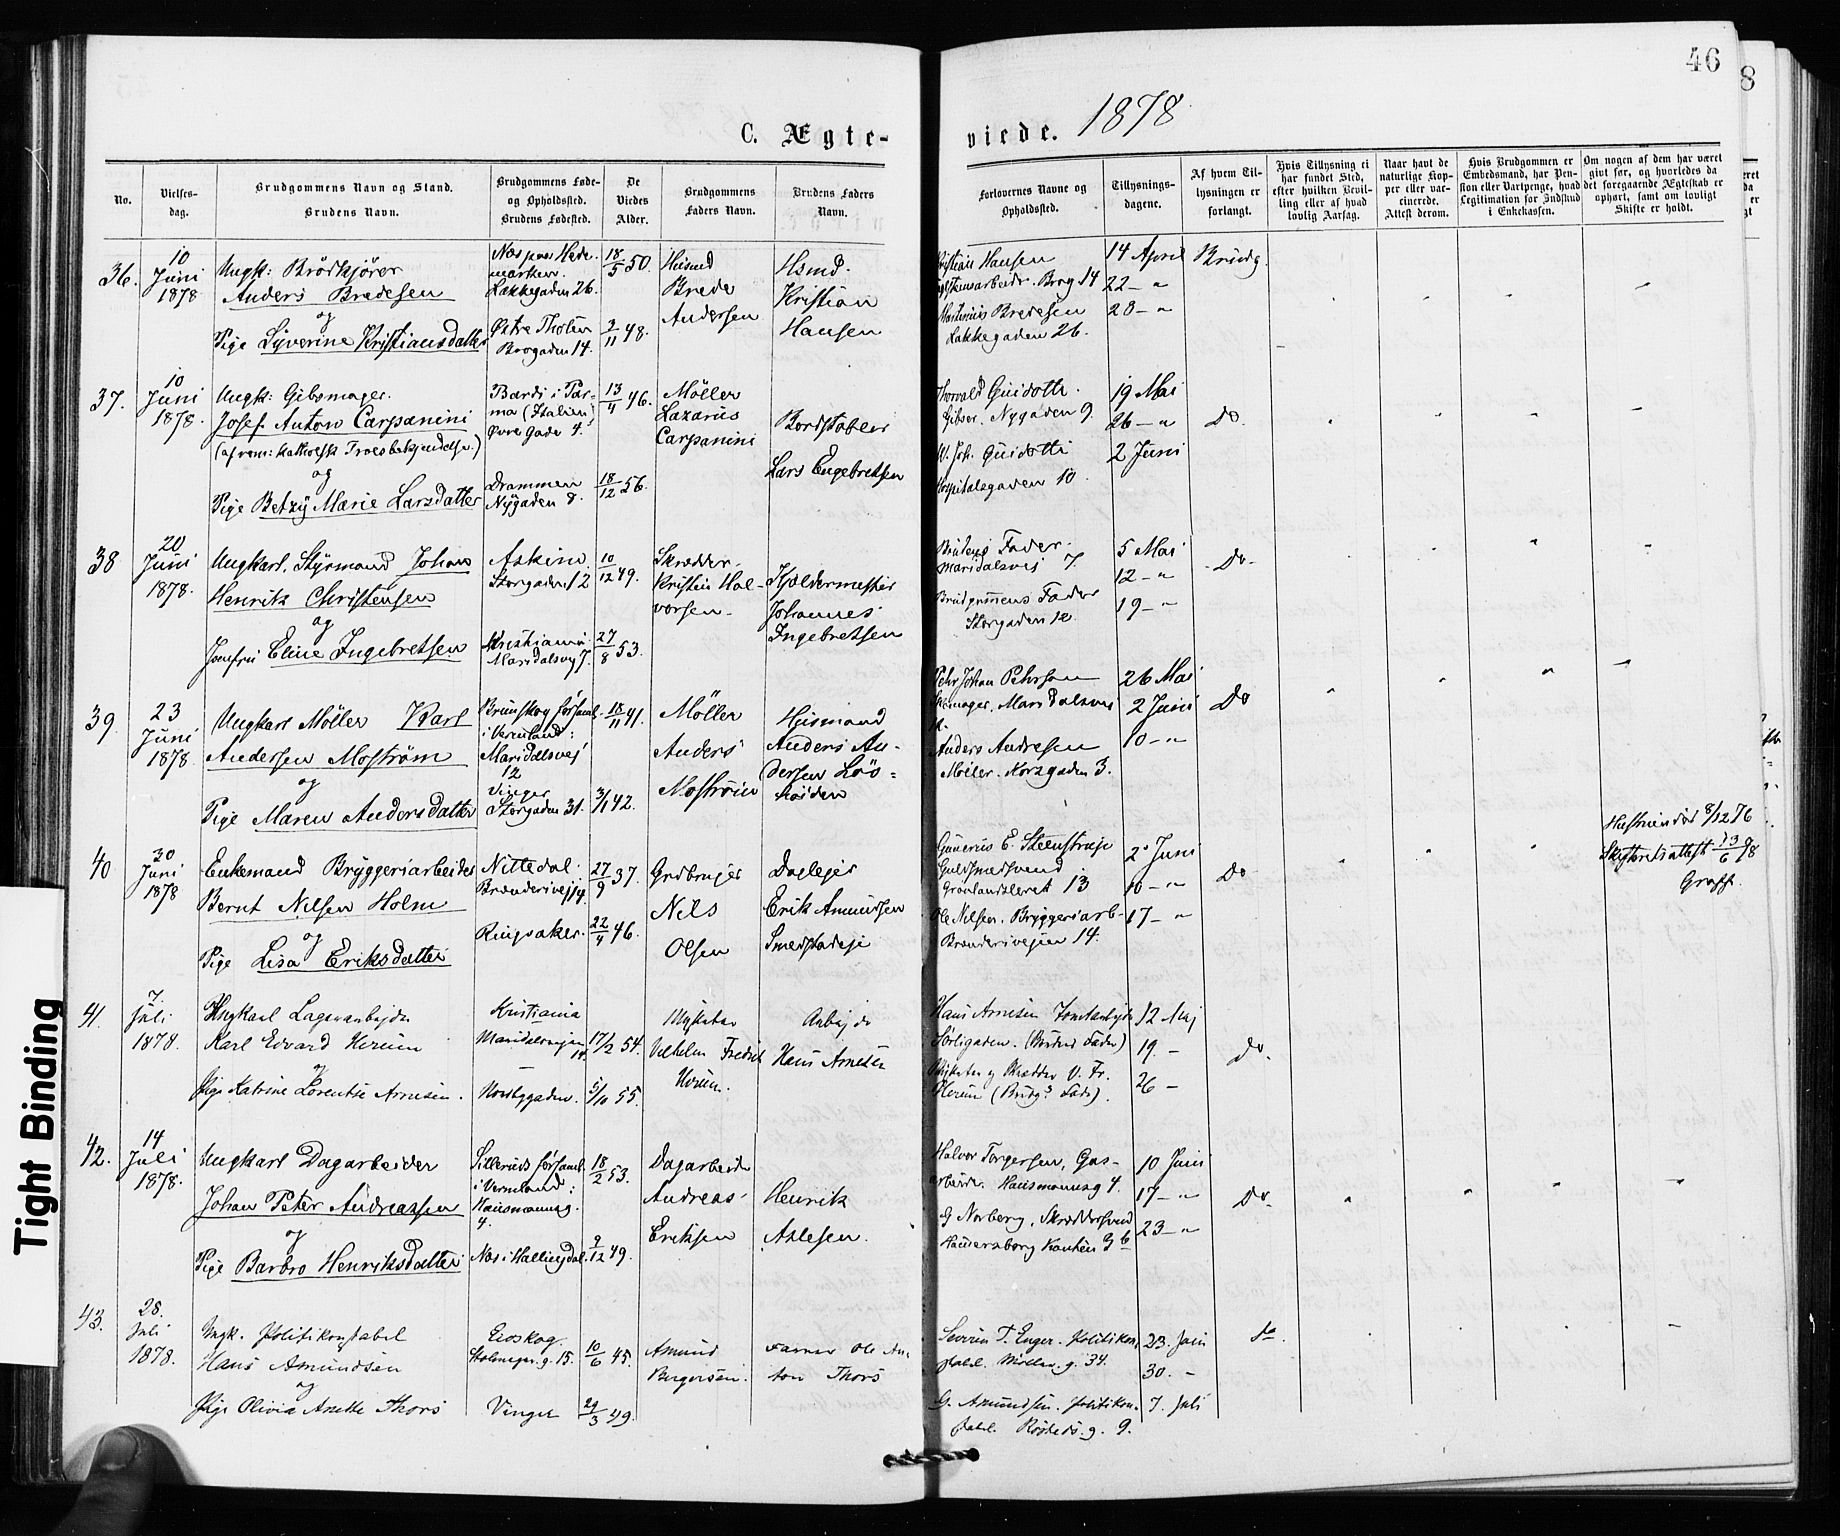 46
8
1878
C. Ægte-
viede.
No.
Vielses-
dag.
Brudgommens Navn og Stand.
Brudens Navn.
Brudgommens Føde-
og Opholdssted.
Brudens Fødested.
De
Viedes
Alder.
Brudgommens
Faders Navn.
Brudens Faders
Navn.
Forlovernes Navne og
Opholdssted.
Tillysnings-
dagene.
Af hvem Til-
lysningen er
forlangt.
Hvis Tillysning ei
har fundet Sted,
efter hvilken Bevil-
ling eller af hvad
lovlig Aarsag.
Naar havt de
naturlige Kop-
per eller vac-
cinerede.
Attest derom.
Hvis Brudgommen er
Embedsmand, har Pen-
sion eller Vartpenge, hvad
Legitimation for Indskud
i Enkekassen.
Om nogen af dem har været
givt før, og hvorledes da
det foregaaende Ægteskab er
ophørt, samt om lovligt
Skifte er holdt.
36.
10
Juni
1878
Ungk: Brödkjörer
Anders Bredesen
og
Pige Syverine Kristiansdatter
Nes paa Hede-
marken.
Lakkegaden 26.
Østre Tholen
Brogaden 14.
18/5 50.
2/11 48.
Husmd
Brede
Andersen
Hsmd.
Kristian
Hansen
Kristian Hansen
Brog 14
Martinius Bredesen
Lakkegaden 26.
14 April
22 — "
28 — "
Brudg.
37.
10
Juni
1878.
Ungk: Gibsmager.
Josef Anton Carpanini
(af rom: katholsk Troesbekjendelse.)
og
Pige Betzy Marie Larsdatter
Bardi i Par-
ma (Italien)
Øvre Gade 4.
Drammen
Nygaden 8.
13/4 46.
18/12 56.
Möller
Lazarus
Carpanini
Bordstabler
Lars Engebretsen
Thorvald Guidotti.
Gibser. Nygaden 9.
W. Joh. Guidotti
Hospitalsgaden 10.
19 Mai
26 — "
2 Juni
Do.
38
20
Juni
1878.
Ungkarl. Styrmand Johan
Henrik Christensen
og
Jomfru Eline Ingebretsen
Askim.
Storgaden 12
Kristiania.
Maridalsvej 7.
10/12 49.
27/8 53.
Skrædder.
Kristen Hal-
vorsen.
Kjældermester
Johannes
Ingebretsen
Brudens Fader.
Maridalsvej 7.
Brudgommens Fader
Storgaden 12.
5 Mai
12 — "
19 — "
Do.
39.
23
Juni
1878
Ungkarl Möller Karl
Andersen Moström
og
Pige Maren Andersdatter
Brunskog forsaml.
i Vermland:
Maridalsvej
12
Vinger
Storgaden 31.
18/11 41.
3/1 42.
Möller
Anders
Moström
Husmand
Anders An-
dersen Lös-
Pehr Johan Pehrson
Maridalsvei
Anders Andresen
Möller. Korsgaden 3.
26 Mai
2 Juni
10 — "
Do
40
30
Juni
1878
Enkemand Bryggeriarbeider
Bernt Nilsen Holm
og
Pige Lisa Eriksdatter
Nittedal.
Brænderivej 14.
Ringsaker.
27/9 37.
22/4 46.
Grdbruger
Nils
Olsen
Daglejer
Erik Amundsen
Smedstadeje
Gunerius E. Steenstrup
Guldsmedsvend
Grønlandsleret 13
Ole Nilsen. Bryggeriarb-
Brænderivejen 14.
2 Juni
10 — "
17 — "
Do
Hustruen död 8/12 76
Skifteretsattest 13/6 78
Graff.
41.
7.
Juli
1878.
Ungkarl Lagerarbejder
Karl Edvard Herum
og
Pige Katrine Lorentse Arnesen.
Kristiania
Maridalsvejen
14.
Nordbygaden.
17/2 54.
5/10 55.
Vægter
Vilhelm Fredrik
Herum.
Arbejder
Hans Arnesen
Hans Arnesen Tomtearbejder
(Brudens Fader)
Vægter og Skrædder V. Fr.
Herum (Brudg.s Fader).
12 Maj
19. —
26 —
Do.
42.
14
Juli
1878.
Ungkarl Dagarbeider
Johan Peter Andreassen
og
Pige Barbro Henriksdatter
Silleruds forsaml.
i Vermland:
Hausmannsg.
4.
Nes i Hallingdal.
18/2 53.
2/12 49.
Dagarbeider
Andreas
Eriksen
Henrik
Aslesen.
Halvor Torgersen, Gas-
arbeider. Hausmannsg 4.
G Norberg, Skræddersvend
Hammersborg
10 Juni
17 — "
23 — "
Do.
43.
28.
Juli
1878.
Ungk. Politikonstabel
Hans Amundsen
og
Pige Olivia Anette Thors
Eidskog
Holmeges. g. 15.
Vinger
10/6 45.
29/3 49.
Amund
Bergersen.
Farver Ole An-
ton Thors
Severin T. Enger. Politikon-
stabel. Möller. g. 34.
G. Amundsen. Politikon-
stabel. Rösteds. g. 9.
23. Juni
30. -
7. Juli
Do
Tight Binding